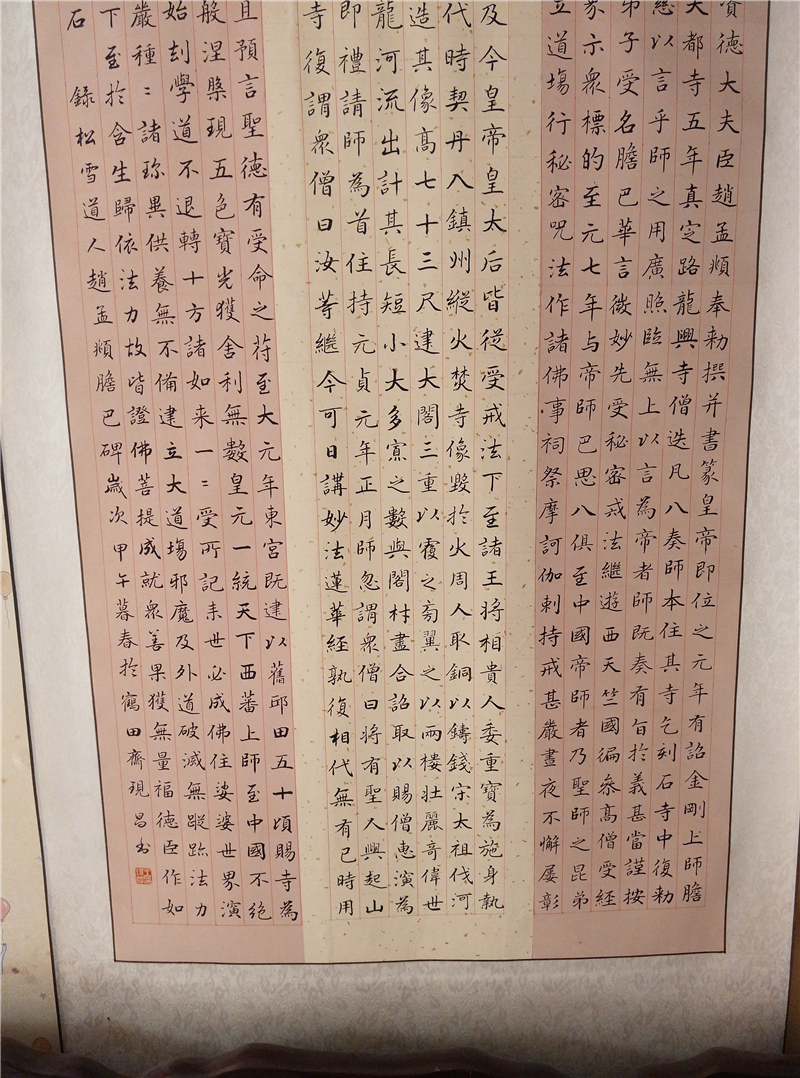 德大夫臣趙孟頫奉勅撰并書篆皇帝即位之元年有詔金剛上師膽
大都寺五年真定路龍興寺僧迭凡八奏師本住其寺乞刻石寺中復勅
慈以言乎師之用廣照臨無上以言為帝者師既奏有旨於義甚當謹按
弟子受名膽巴華言微妙先受秘密戒法繼遊西天竺國徧叅高僧受經
示眾標的至元七年与帝師巴思八俱至中國帝師者乃聖師之昆弟
立道塲行秘密咒法作諸佛事祠祭摩訶伽剌持戒甚嚴晝夜不懈屡彰
及今皇帝皇太后皆従受戒法下至諸王将相貴人委重寶為施身執
代時契丹入鎮州縱火焚寺像毀於火周人取銅以鑄錢宋太祖伐河
造其像高七十三尺建大閣三重以覆之旁翼之以兩楼壯麗竒偉世
龍河流出計其長短小大多寡之數與閣材盡合詔取以賜僧恵演為
即禮請師為首住持元貞元年正月師忽謂眾僧曰将有聖人興起山
寺復謂眾僧曰汝等繼今可日講妙法蓮華經孰復相代無有已時用
且預言聖德有受命之苻至大元年東宮既建以舊邸田五十頃賜寺為
般涅槃現五色寶光獲舍利無數皇元一統天下西蕃上師至中國不絶
始刦學道不退轉十方諸如来一二受所記来世必成佛住娑婆世界演
嚴種二諸珎異供養無不備建立大道塲邪魔及外道破滅無蹤跡法力
下至於含生歸依法力故皆證佛菩提成就眾善果獲無量福德臣作如
石 錄松雪道人趙孟頫膽巴碑嵗次甲午暮春於鶴田齋現昌书